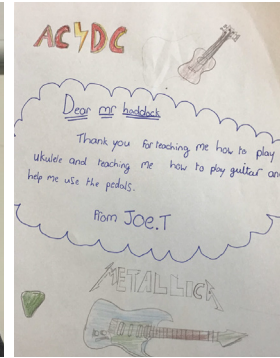 AC⚡DC
Dear mr haddock
Thank you for teaching me how to play
ukulele and teaching me how to play guitar and
help me use the pedals.
From JOE.T
METALLICA